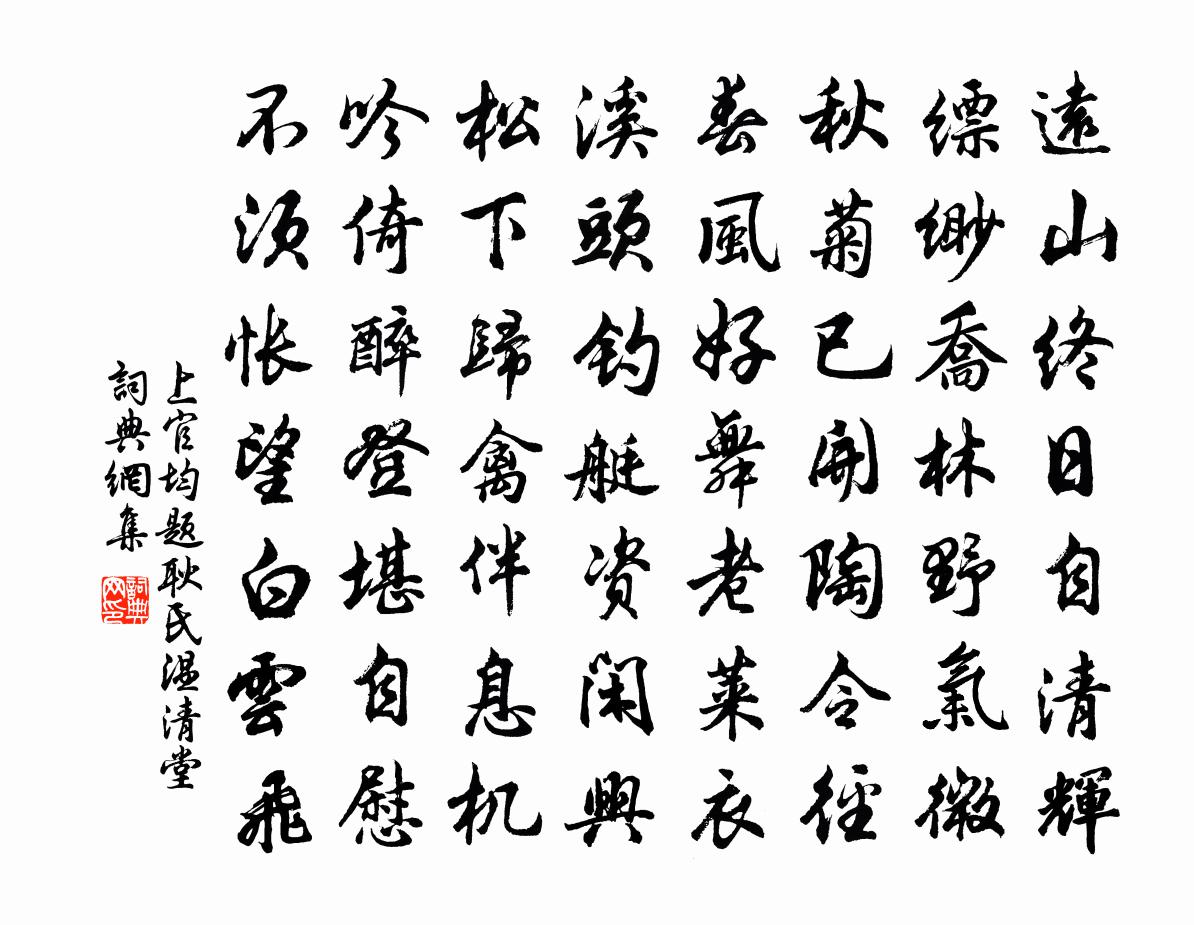 遠山終日自清輝
縹緲喬林野氣微
秋菊已開陶令徑
春風好舞老萊衣
溪頭釣艇資閑興
松下歸禽伴息机
吟倚醉登堪自慰
不須悵望白雲飛
上官均題耿氏温清堂
詞典網集
詞典网印